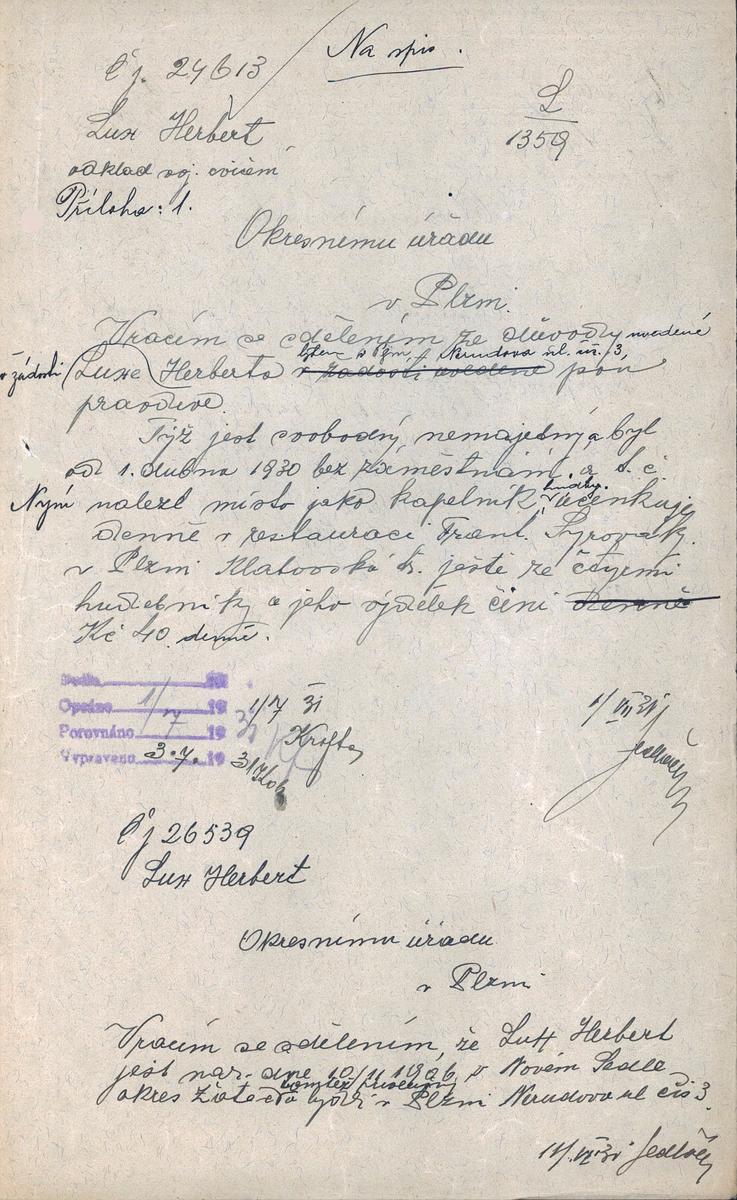 Na spis.
Čj. 24613
L
1359
Lux Herbert
odklad voj. cvičení
Příloha: 1.
Okresnímu úřadu
v Plzni.
Vracím se sdělením že důvody uvedené
v žádosti Luxe Herberta v žádosti uvedené jsou
v Plzni, Nerudova ul. čís. 3,
pravdivé.
Týž jest svobodný, nemajetný, byl
od 1. dubna 1930 bez zaměstnání a t. č.
Nyní nalezl místo jako kapelník, hudby. účinkuje
denně v restauraci Frant. Syrovátky
v Plzni Klatovská tř. ještě se čtyřmi
hudebníky a jeho výdělek činí denně
Kč 40 denně.
Došlo 19
Opsáno 1/7 19 31
Porovnáno 19
Vypraveno 3.7. 19 31
1/7 31
Krofta
1/VII 31
Čj 26539
Lux Herbert
Okresnímu úřadu
v Plzni
Vracím se sdělením, že Lux Herbert
jest nar. dne 10/11 1906 v Novém Sedle
okres Žatec a bydlí v Plzni Nerudova ul čís 3.